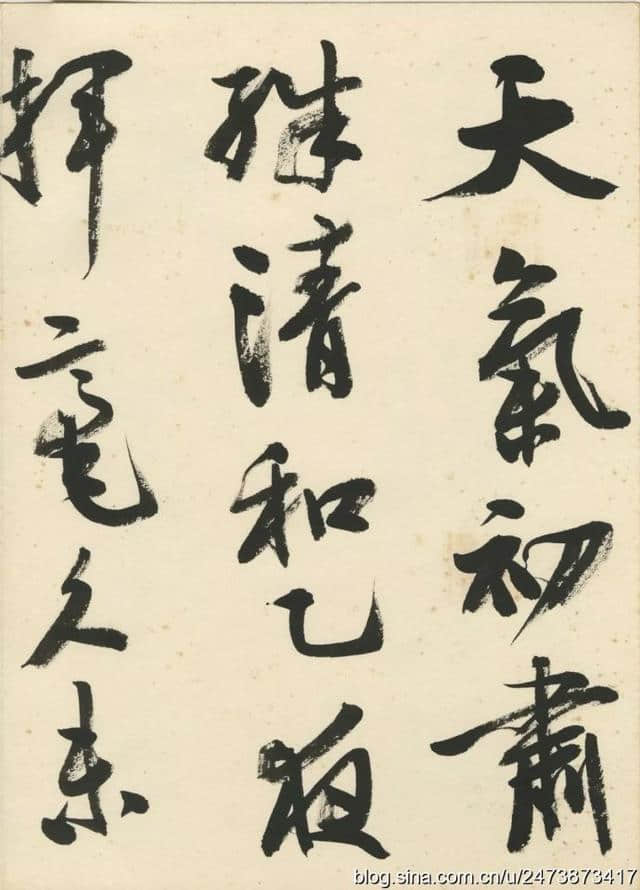 天氣初肅
殊清和乙夜
揮毫久未
blog.sina.com.cn/u/2473873417